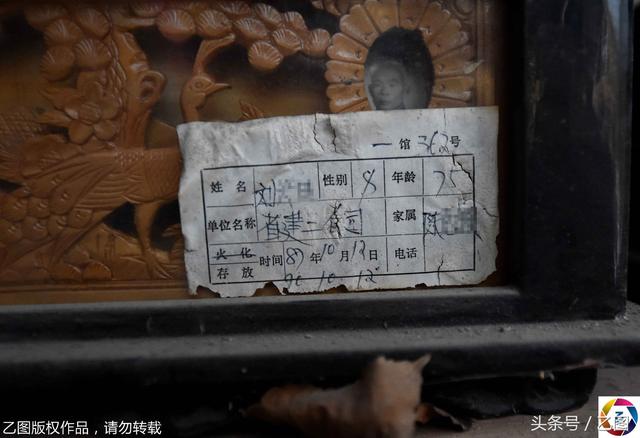 一馆362号
姓名 刘 性别 年龄 75
单位名称 省建二 家属
火化 时间 87年10月12日 电话
存放 10 12
乙图版权作品，请勿转载
头条号／乙图
乙